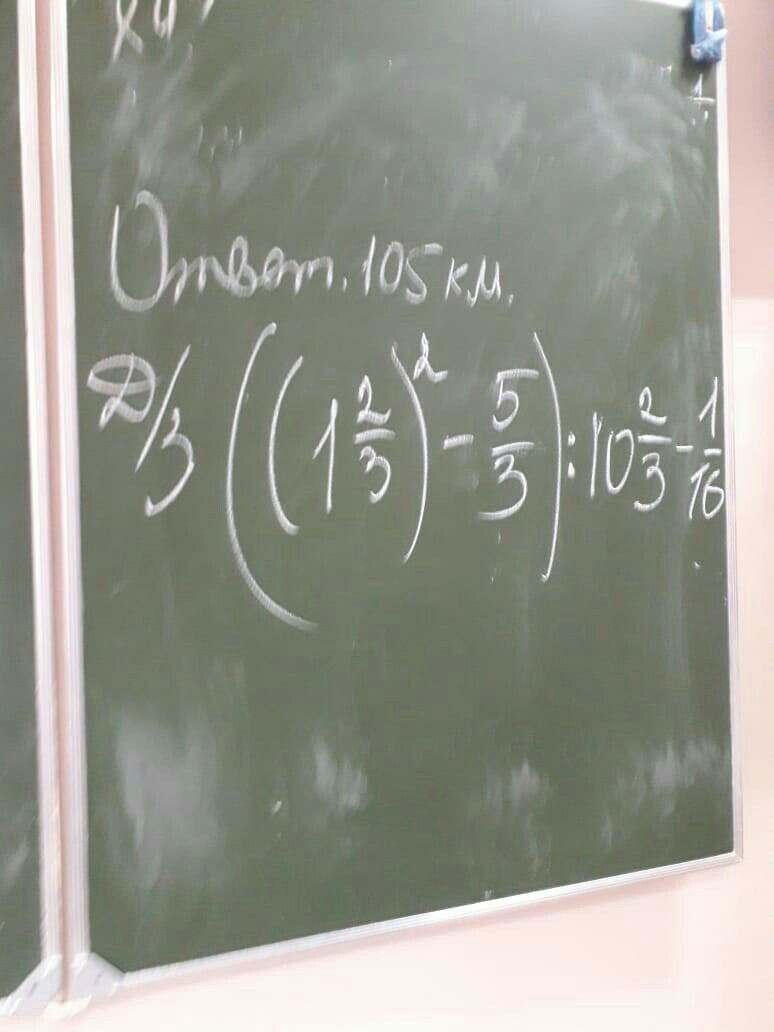 Ответ. 105 км.
Д/з ((1 2/3)² - 5/3) : 10 2/3 - 1/16